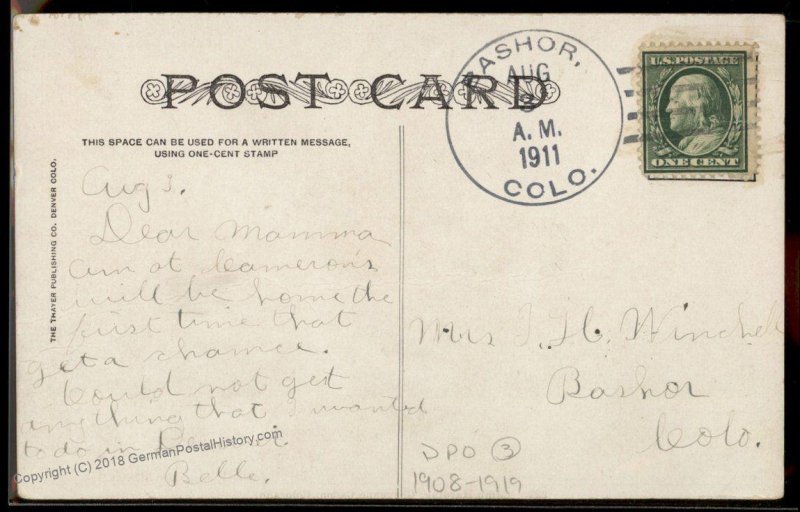 POST CARD
BASHOR,
AUG
3
A.M.
1911
COLO.
U.S. POSTAGE
ONE CENT
THIS SPACE CAN BE USED FOR A WRITTEN MESSAGE,
USING ONE-CENT STAMP
THE THAYER PUBLISHING CO. DENVER COLO.
Aug 3.
Dear Mamma
am at Cameron's
will be home the
first time that
get a chance.
Could not get
anything that I wanted
to do in
Belle.
Mrs H. Winchell
Bashor
Colo.
DPO 3
1908-1919
Copyright (C) 2018 GermanPostalHistory.com